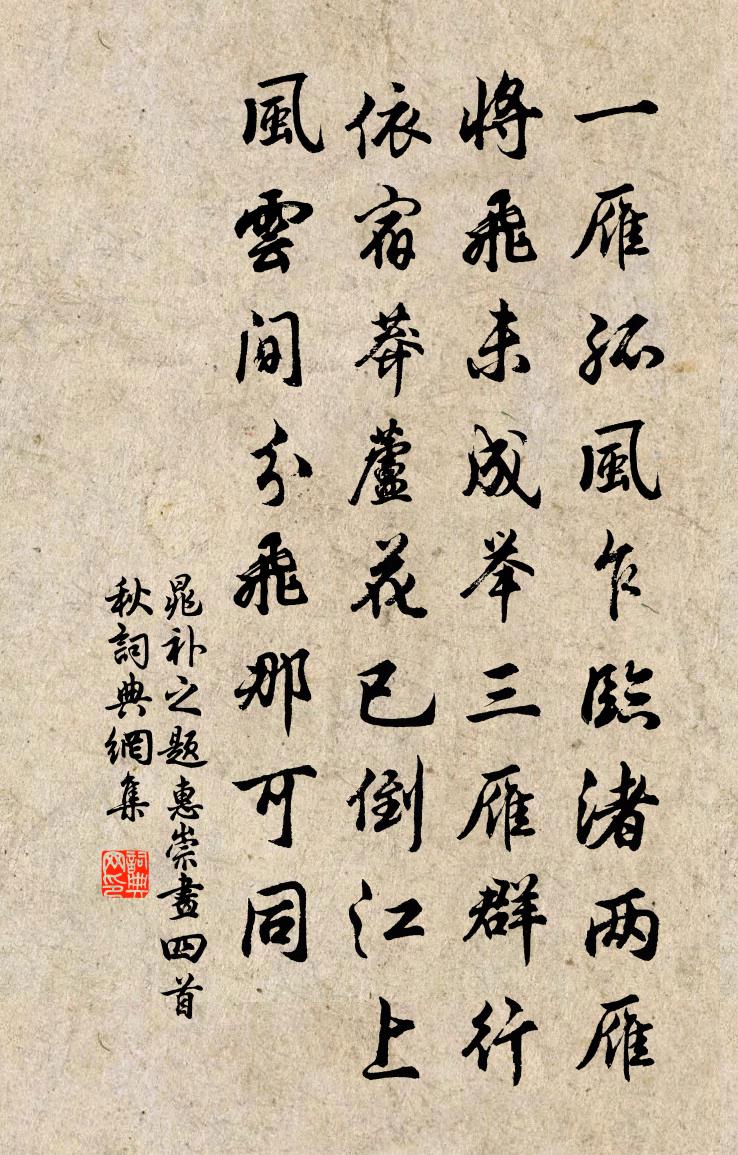 一雁孤風乍臨渚两雁
将飛未成举三雁群行
依宿莽蘆花已倒江上
風雲間分飛那可同
晁补之题惠崇畫四首
秋詞典網集
詞典网印